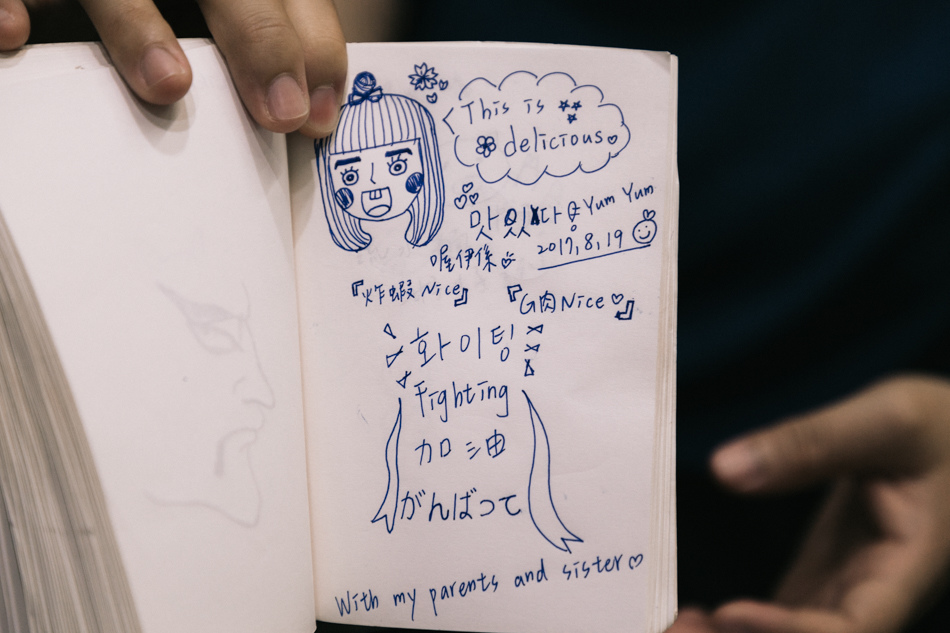 This is
delicious
맛있다요 Yum Yum
2017,8,19
喔伊係
『炸蝦 Nice』
『G肉 Nice』
화이팅
Fighting
加油
がんばって
With my parents and sister